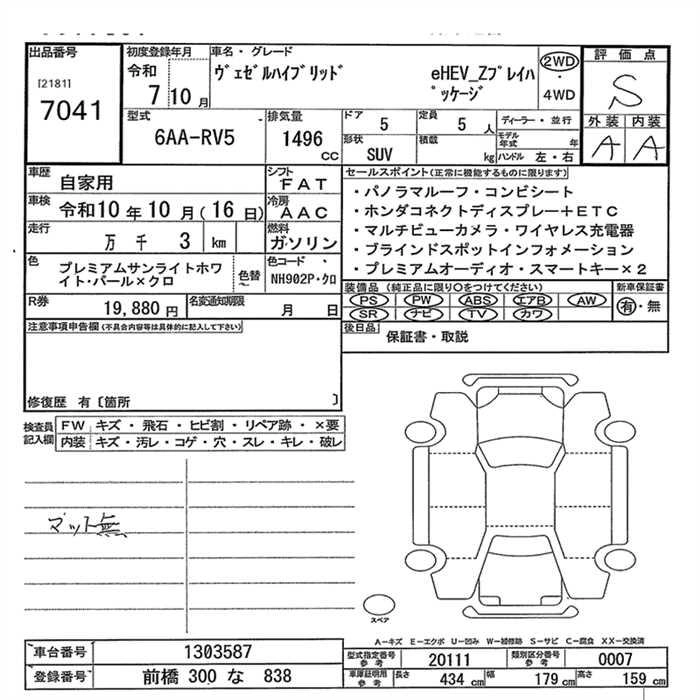 出品番号
[2181]
7041
初度登録年月
令和
7 10 月
車名・グレード
ヴェゼルハイブリッド
eHEV_Zプレイハ
゚ッケージ
2WD
・
4WD
評価点
S
外装 内装
A A
型式
6AA-RV5
排気量
1496
cc
ドア 5
定員 5 人
ディーラー・並行
形状
SUV
積載
kg
モデル年式 年
ハンドル 左・右
車歴
自家用
シフト
FAT
車検
令和10年10月(16日)
冷房
AAC
走行
万 千 3 km
燃料
ガソリン
色
プレミアムサンライトホワ
イト・パール×クロ
色替
~
色コード
NH902P・クロ
R券
19,880 円
名変通知期限
月 日
セールスポイント(正常に機能するものに限ります)
・パノラマルーフ・コンビシート
・ホンダコネクトディスプレー+ETC
・マルチビューカメラ・ワイヤレス充電器
・ブラインドスポットインフォメーション
・プレミアムオーディオ・スマートキー×2
装備品(純正品に限り○をつけてください)
PS PW ABS エアB AW
SR ナビ TV カワ
新車保証書
有・無
後日品
保証書・取説
注意事項申告欄(不具合内容等は具体的に記入して下さい)
修復歴 有〔箇所 〕
検査員
記入欄
FW キズ・飛石・ヒビ割・リペア跡・×要
内装 キズ・汚レ・コゲ・穴・スレ・キレ・破レ
マット無
スペア
A-キズ E-エクボ U-凹み W-補修跡 S-サビ C-腐食 XX-交換済
車台番号 1303587
登録番号 前橋 300 な 838
型式指定番号
参考
20111
類別区分番号
参考
0007
車庫証明用
参考
長さ 434 cm
幅 179 cm
高さ 159 cm